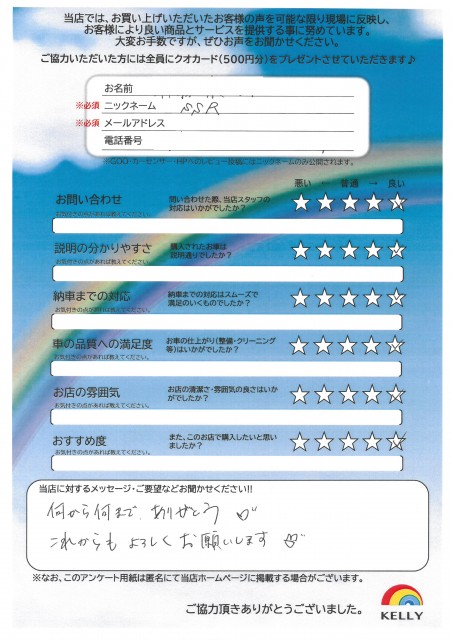 当店では、お買い上げいただいたお客様の声を可能な限り現場に反映し、
お客様により良い商品とサービスを提供する事に努めています。
大変お手数ですが、ぜひお声をお聞かせください。
ご協力いただいた方には全員にクオカード(500円分)をプレゼントさせていただきます♪
お名前
※必須 ニックネーム SSR
※必須 メールアドレス
電話番号
※GOO・カーセンサー・HPへのレビュー投稿にはニックネームのみ公開されます。
悪い ← 普通 → 良い
お問い合わせ 問い合わせた際、当店スタッフの
対応はいかがでしたか?
お気付きの点があれば教えてください。
説明の分かりやすさ 購入されたお車は
説明通りでしたか?
お気付きの点があれば教えてください。
納車までの対応 納車までの対応はスムーズで
満足のいくものでしたか?
お気付きの点があれば教えてください。
車の品質への満足度 お車の仕上がり(整備・クリーニング
等)はいかがでしたか?
お気付きの点があれば教えてください。
お店の雰囲気 お店の清潔さ・雰囲気の良さはいか
がでしたか?
お気付きの点があれば教えてください。
おすすめ度 また、このお店で購入したいと思い
ましたか?
お気付きの点があれば教えてください。
当店に対するメッセージ・ご要望などお聞かせください!!
何から何まで、ありがとう
これからも よろしく お願いします
※なお、このアンケート用紙は匿名にて当店ホームページに掲載する場合がございます。
ご協力頂きありがとうございました。
KELLY